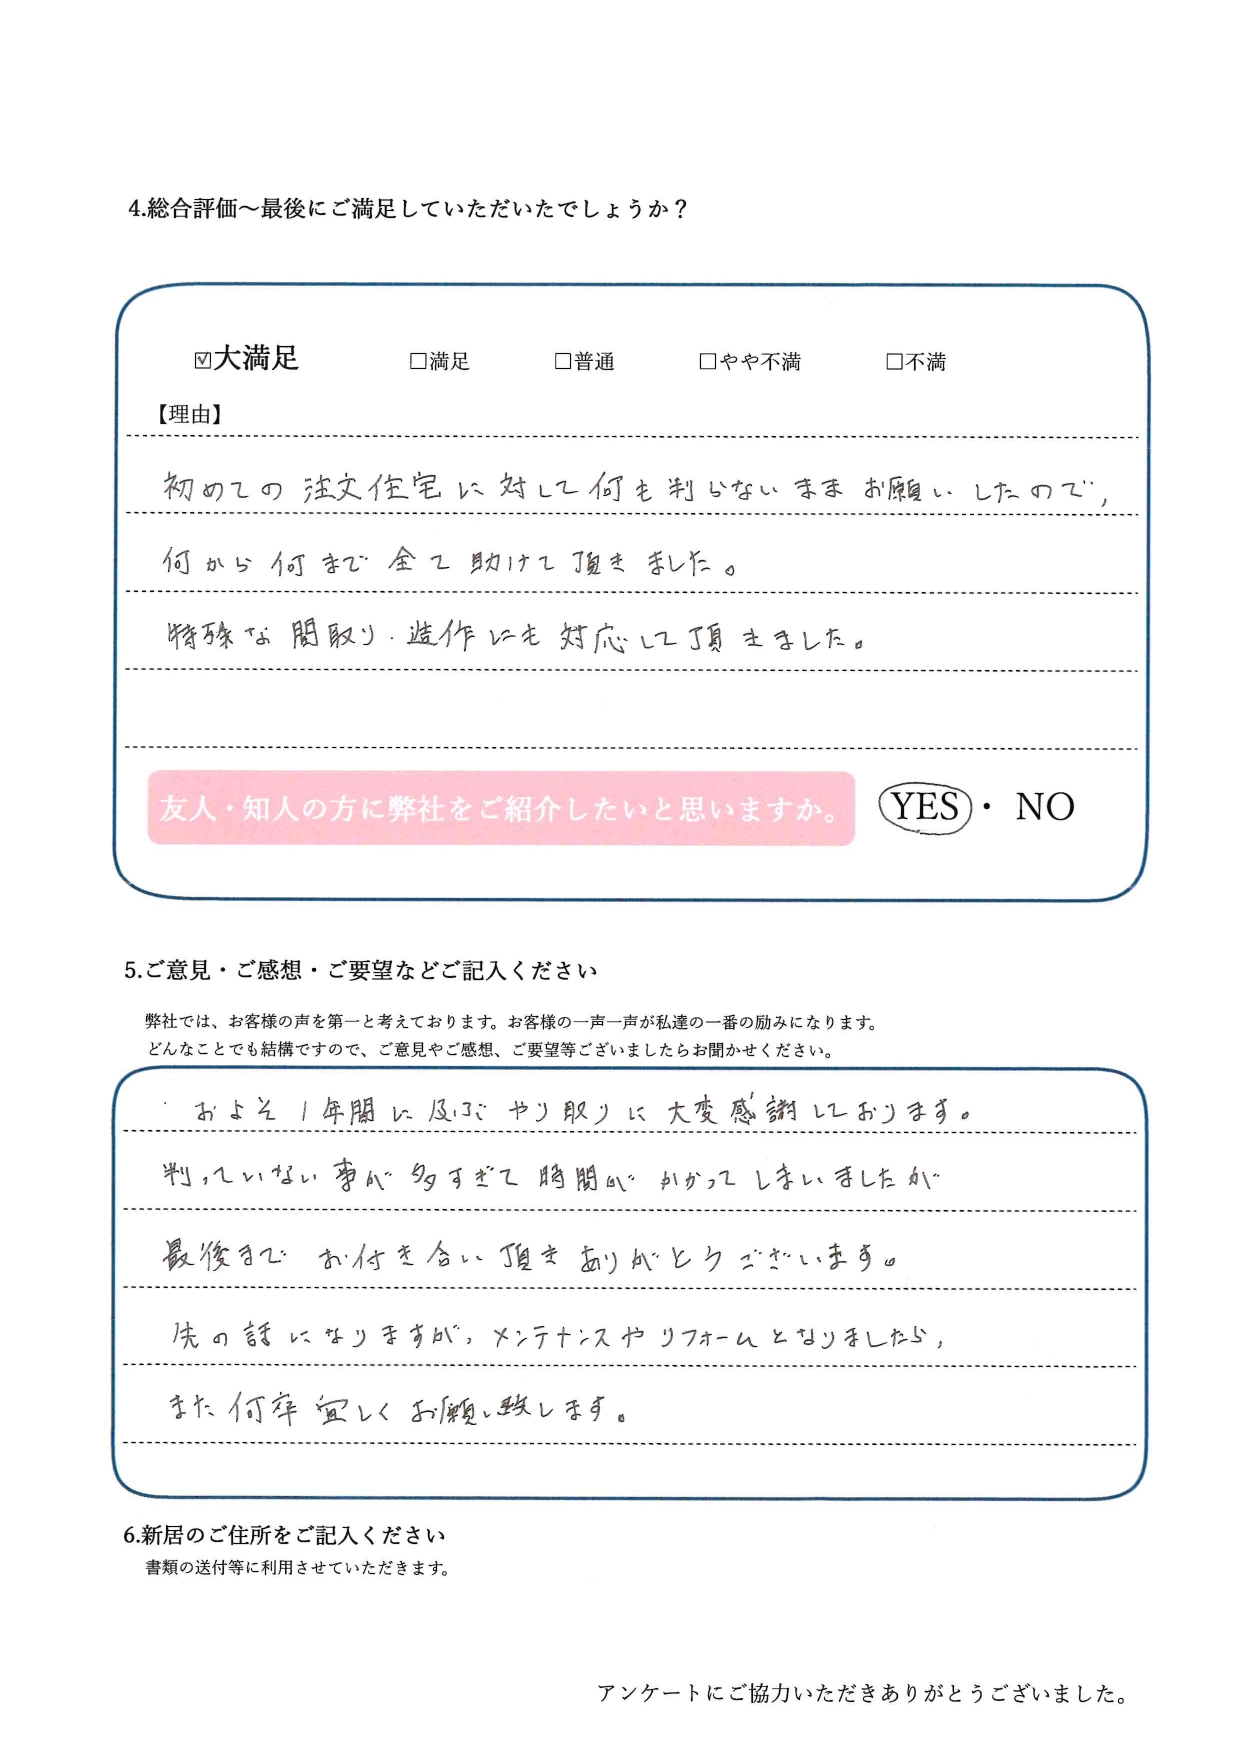 4.総合評価～最後にご満足していただいたでしょうか？
☑大満足 □満足 □普通 □やや不満 □不満
【理由】
初めての注文住宅に対して何も判らないままお願いしたので,
何から何まで全て助けて頂きました。
特殊な間取り・造作にも対応して頂きました。
友人・知人の方に弊社をご紹介したいと思いますか。 YES・NO
5.ご意見・ご感想・ご要望などご記入ください
弊社では、お客様の声を第一と考えております。お客様の一声一声が私達の一番の励みになります。
どんなことでも結構ですので、ご意見やご感想、ご要望等ございましたらお聞かせください。
およそ1年間に及ぶやり取りに大変感謝しております。
判っていない事が多すぎて時間がかかってしまいましたが
最後までお付き合い頂きありがとうございます。
先の話になりますが,メンテナンスやリフォームとなりましたら,
また何卒宜しくお願い致します。
6.新居のご住所をご記入ください
書類の送付等に利用させていただきます。
アンケートにご協力いただきありがとうございました。